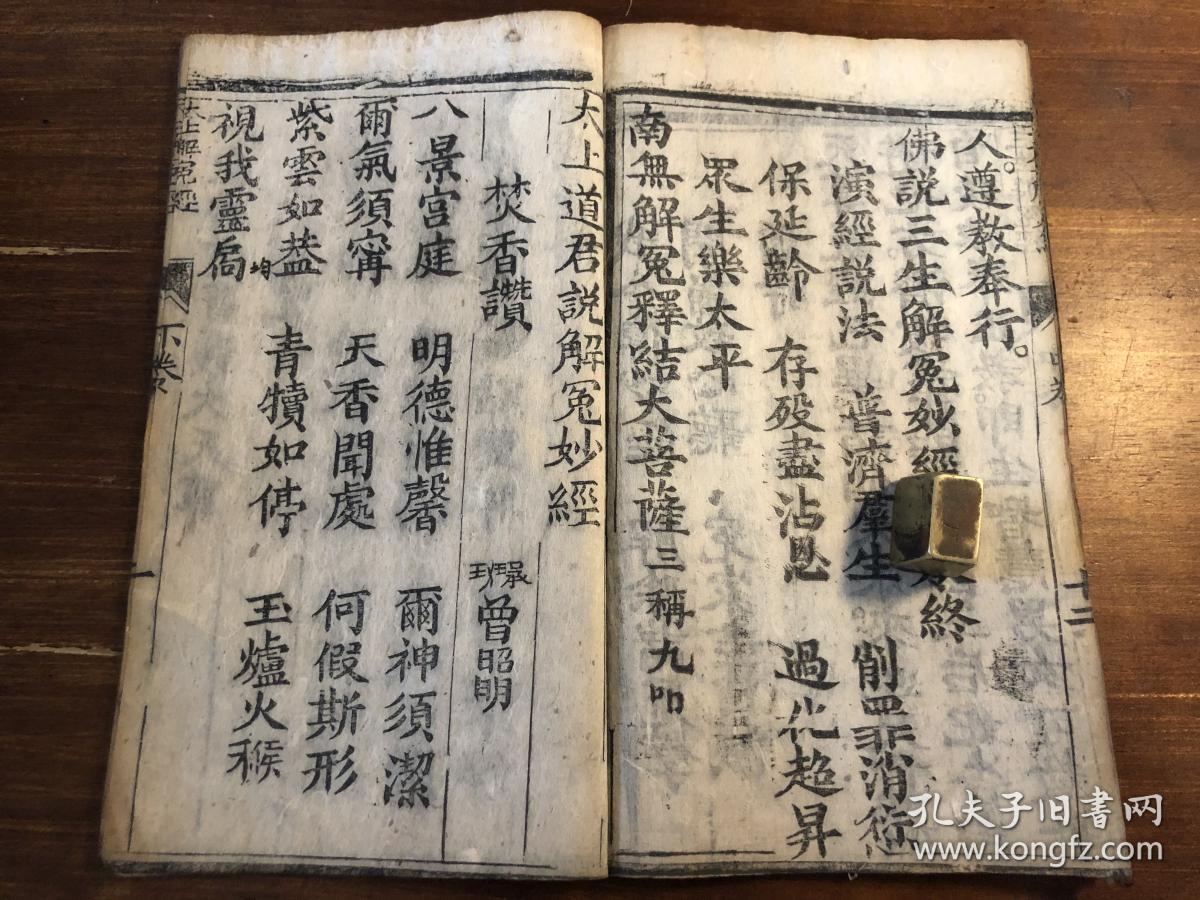 人。遵教奉行。
佛説三生解冤妙經 終
演經説法 普濟羣生 削罪消愆
保延齡 存殁盡沾恩 過化超昇
眾生樂太平
南無解冤釋結大菩薩三稱九叩
中卷
十二
太上道君説解冤妙經
焚香讚 曾昭明
八景宫庭 明德惟馨 爾神須潔
爾氣須寗 天香聞處 何假斯形
紫雲如葢 青犢如停 玉爐火候
視我靈扃
太上解冤經
下卷
一
孔夫子旧书网
www.kongfz.com